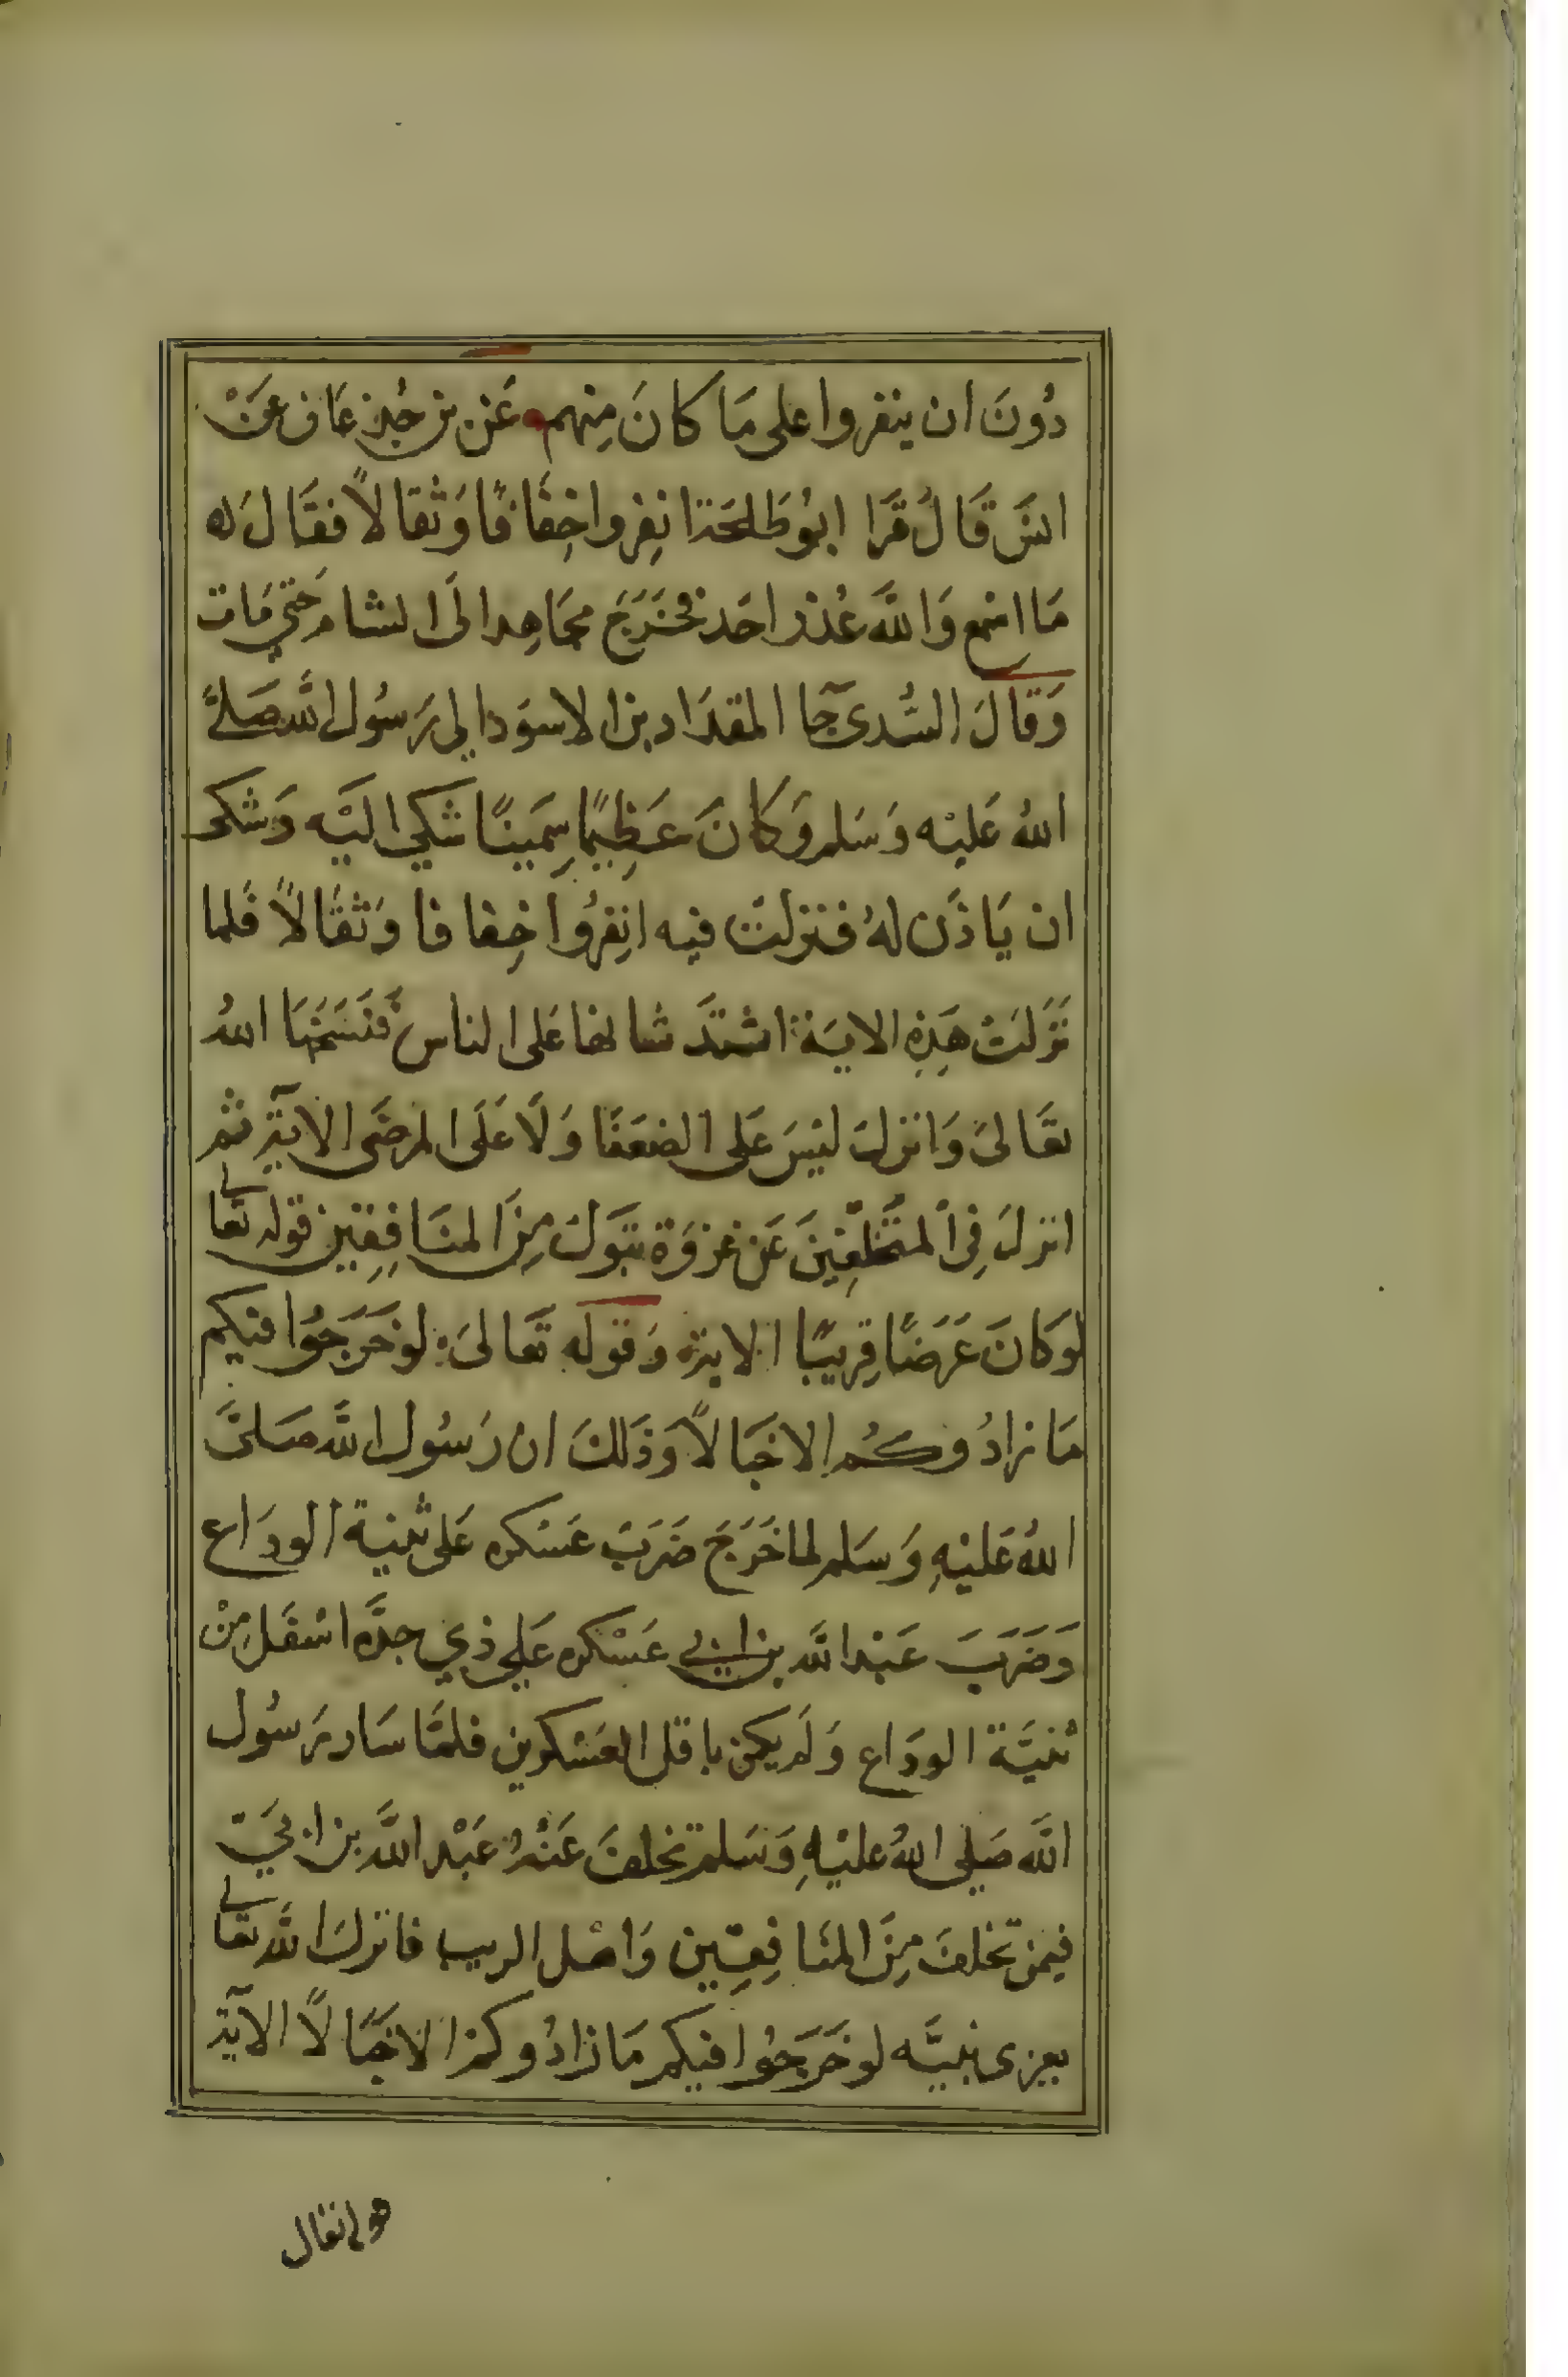 دُونَ ان ينفروا على مَا كانَ مِنهم عَن بن جُبز عَاف عَنْ
انسَ قَالُ قَرَا ابوُ طَلحَة انِفروا خِفَافًا وَثقالاً فقَالَ له
مَا اسمع وَاللَّه عُذر احَد فخَرَجَ مجَاهِدا الَى الشام حَتي مَات
وَقالَ السُّدى جَآ المقدَاد بن الاسوَد الي رَسُول اللَّه صَلىَّ
اللهُ عَليْه وَسَلم وَكانَ عَظِيمًا سِمَينًا شكي اليَه وَشكى
ان يَاذَن لهُ فنزلتَ فيه انِفرُوا خِفا فا وَثقَالاً فَلما
نَزَلتْ هَذِهِ الايَة اشتدَّ شانها عَلى الناس فنَسَخَهَا اللهُ
تعَالىَ وَانزلَ ليَسَ عَلى الضعَفَا وَلَا عَلَى المرضَى الآيَة ثم
انزلَ فِى المتَخَلِّفِينَ عَن غزوَة تبَوك مِنَ المنَافِقِين قوله تعَالي
لوَ كانَ عَرَضًا قِريبًا الاية وَقوله تَعَالىَ لوخَرَجوُا فيكم
مَا زادُوكُم الا خَبَالاً وَذَلكَ ان رَسُول اللَّه صَلىَّ
اللهُ عَليْهِ وَسَلم لما خَرَجَ ضَرَبَ عَسْكره عَلى ثنية الودَاع
وَضَرَبَ عَبْد اللَّه بن ابي عَسْكره عَلي ذي جدَّه اسْفَل مِنْ
ثنيَّة الودَاع وَلم يكن باقل العَسْكرين فلمَّا سَار رَسُول
اللَّه صَلي اللهُ عليْهِ وَسَلم تخلفَ عَنْهُ عَبْد اللَّه بن ابَيّ
فيمن تخلفَ مِنَ المنَافِقِين وَاهْل الريب فانزلَ اللَّه تعَالي
يعزى نبيَّه لوخَرَجوُا فيكم مَا زادُوكم الا خَبَالاً الآيَة